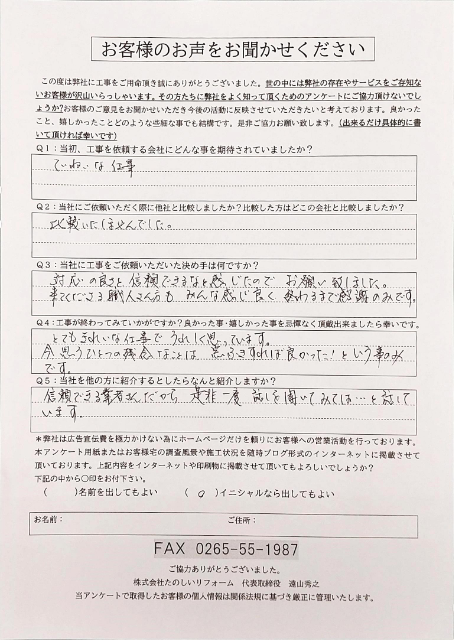 お客様のお声をお聞かせください
この度は弊社に工事をご用命頂き誠にありがとうございました。世の中には弊社の存在やサービスをご存知な
いお客様が沢山いらっしゃいます。その方たちに弊社をよく知って頂くためのアンケートにご協力頂けないでし
ょうか?お客様のご意見をお聞かせいただき今後の活動に反映させていただきたいと考えております。良かった
こと、嬉しかったことどのような些細な事でも結構です。是非ご協力お願い致します。(出来るだけ具体的に書
いて頂ければ幸いです)
Q1：当初、工事を依頼する会社にどんな事を期待されていましたか?
ていねいな仕事
Q2：当社にご依頼いただく際に他社と比較しましたか?比較した方はどこの会社と比較しましたか?
比較いたしませんでした。
Q3：当社に工事をご依頼いただいた決め手は何ですか?
対応の良さと信頼できるなと感じたので お願い致しました。
来てくださる職人さん方も みんな感じ良く 終わるまで感謝のみです。
Q4：工事が終わってみていかがですか?良かった事・嬉しかった事を忌憚なく頂戴出来ましたら幸いです。
とてもきれいな仕事で うれしく思っています。
今 思うひとつの残念なことは 葺ふきすれば良かった！という事のみ
です。
Q5：当社を他の方に紹介するとしたらなんと紹介しますか?
信頼できる業者さんだから 是非一度 話しを聞いてみては…と話して
います。
＊弊社は広告宣伝費を極力かけない為にホームページだけを頼りにお客様への営業活動を行っております。
本アンケート用紙またはお客様宅の調査風景や施工状況を随時ブログ形式のインターネットに掲載させて
頂いております。上記内容をインターネットや印刷物に掲載させて頂いてもよろしいでしょうか?
下記の中から〇印をお付下さい。
( )名前を出してもよい (○)イニシャルなら出してもよい
お名前： ご住所：
FAX 0265-55-1987
ご協力ありがとうございました。
株式会社たのしいリフォーム 代表取締役 遠山秀之
当アンケートで取得したお客様の個人情報は関係法規に基づき厳正に管理いたします。